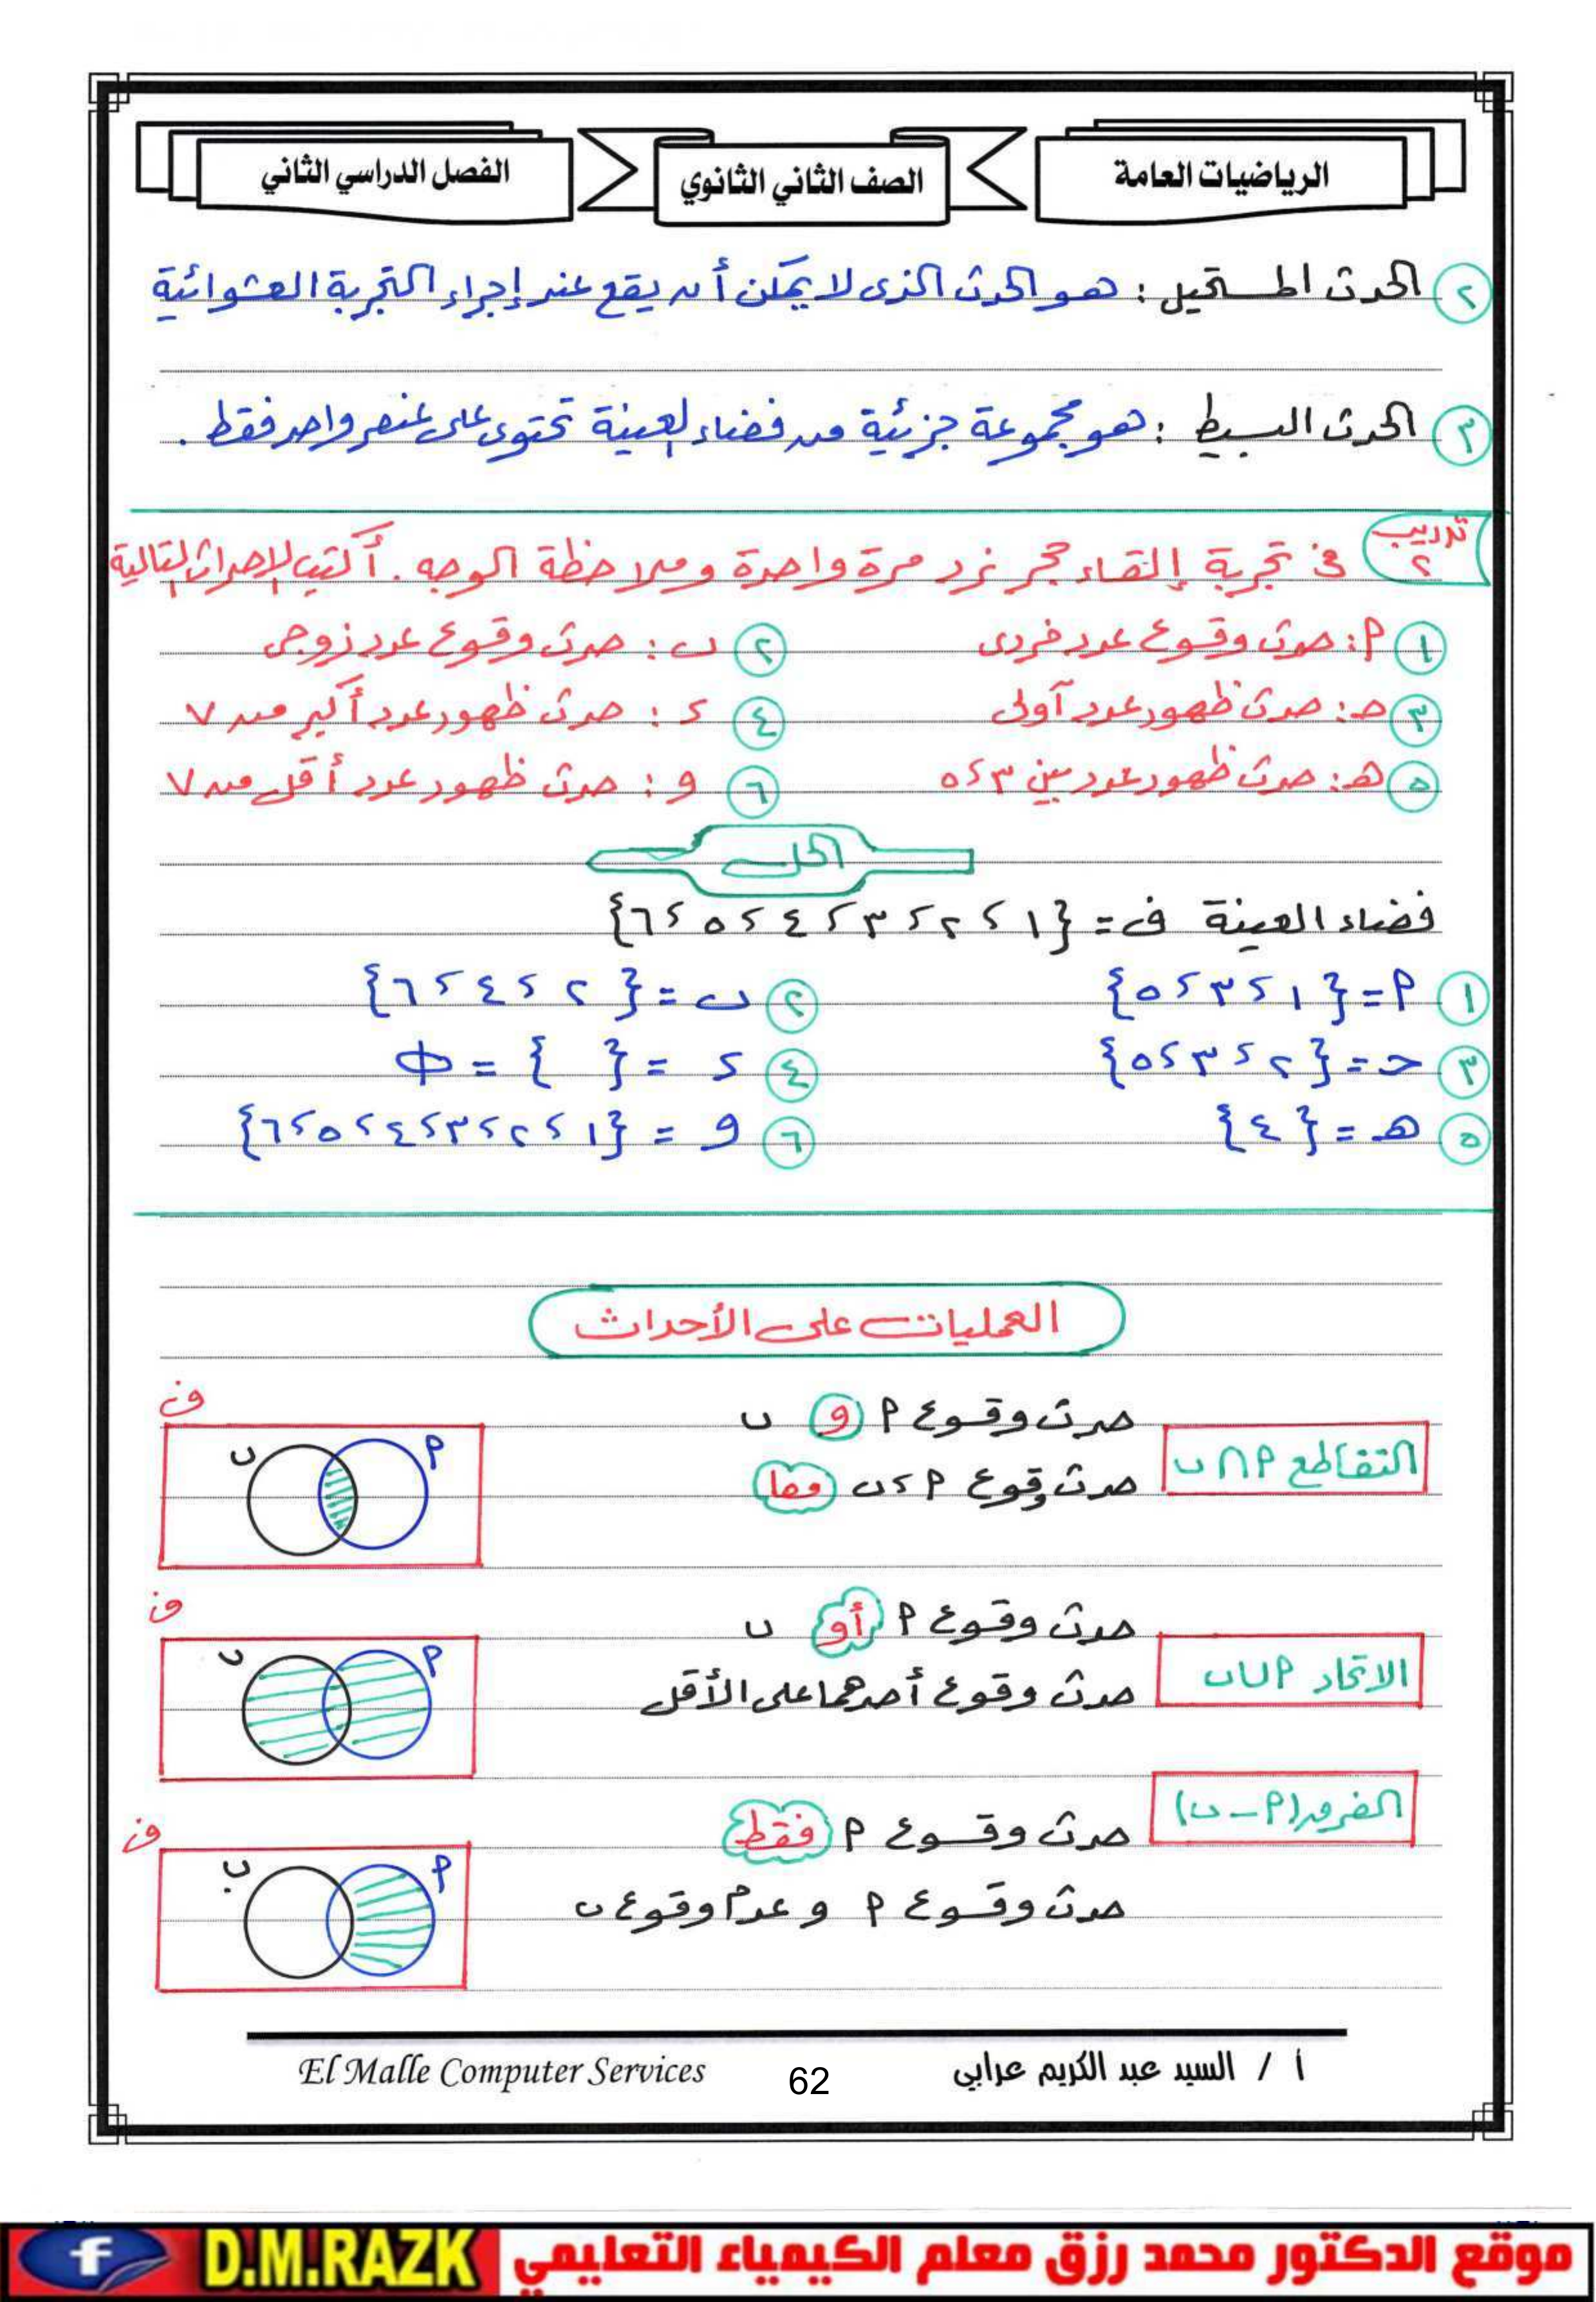 الرياضيات العامة
الصف الثاني الثانوي
الفصل الدراسي الثاني
٢ الحدث المستحيل : هو الحدث الذى لا يمكن أن يقع عند إجراء التجربة العشوائية
٣ الحدث البسيط : هو مجموعة جزئية من فضاء العينة تحتوى على عنصر واحد فقط .
تدريب ٢ فى تجربة إلقاء حجر نرد مرة واحدة وملاحظة الوجه . أكتب الاحداث التالية
١ ٩: حدث وقوع عدد فردى ٢ ب : حدث وقوع عدد زوجى
٣ حـ: حدث ظهور عدد أولى ٤ د : حدث ظهور عدد أكبر من ٧
٥ هـ: حدث ظهور عدد بين ٣ ، ٥ ٦ و : حدث ظهور عدد أقل من ٧
الحل
فضاء العينة ف = {١ ، ٢ ، ٣ ، ٤ ، ٥ ، ٦}
١ ٩ = {١ ، ٣ ، ٥} ٢ ب = {٢ ، ٤ ، ٦}
٣ حـ = {٢ ، ٣ ، ٥} ٤ د = { } = Φ
٥ هـ = {٤} ٦ و = {١ ، ٢ ، ٣ ، ٤ ، ٥ ، ٦}
العمليات على الأحداث
التقاطع ٩ ∩ ب
حدث وقوع ٩ و ب
حدث وقوع ٩ ، ب معا
ف
٩ ب
الاتحاد ٩ ∪ ب
حدث وقوع ٩ أو ب
حدث وقوع أحدهما على الأقل
ف
٩ ب
الفرق (٩ - ب)
حدث وقوع ٩ فقط
حدث وقوع ٩ و عدم وقوع ب
ف
٩ ب
أ / السيد عبد الكريم عرابي
62
El Malle Computer Services
موقع الدكتور محمد رزق معلم الكيمياء التعليمي
D.M.RAZK
f